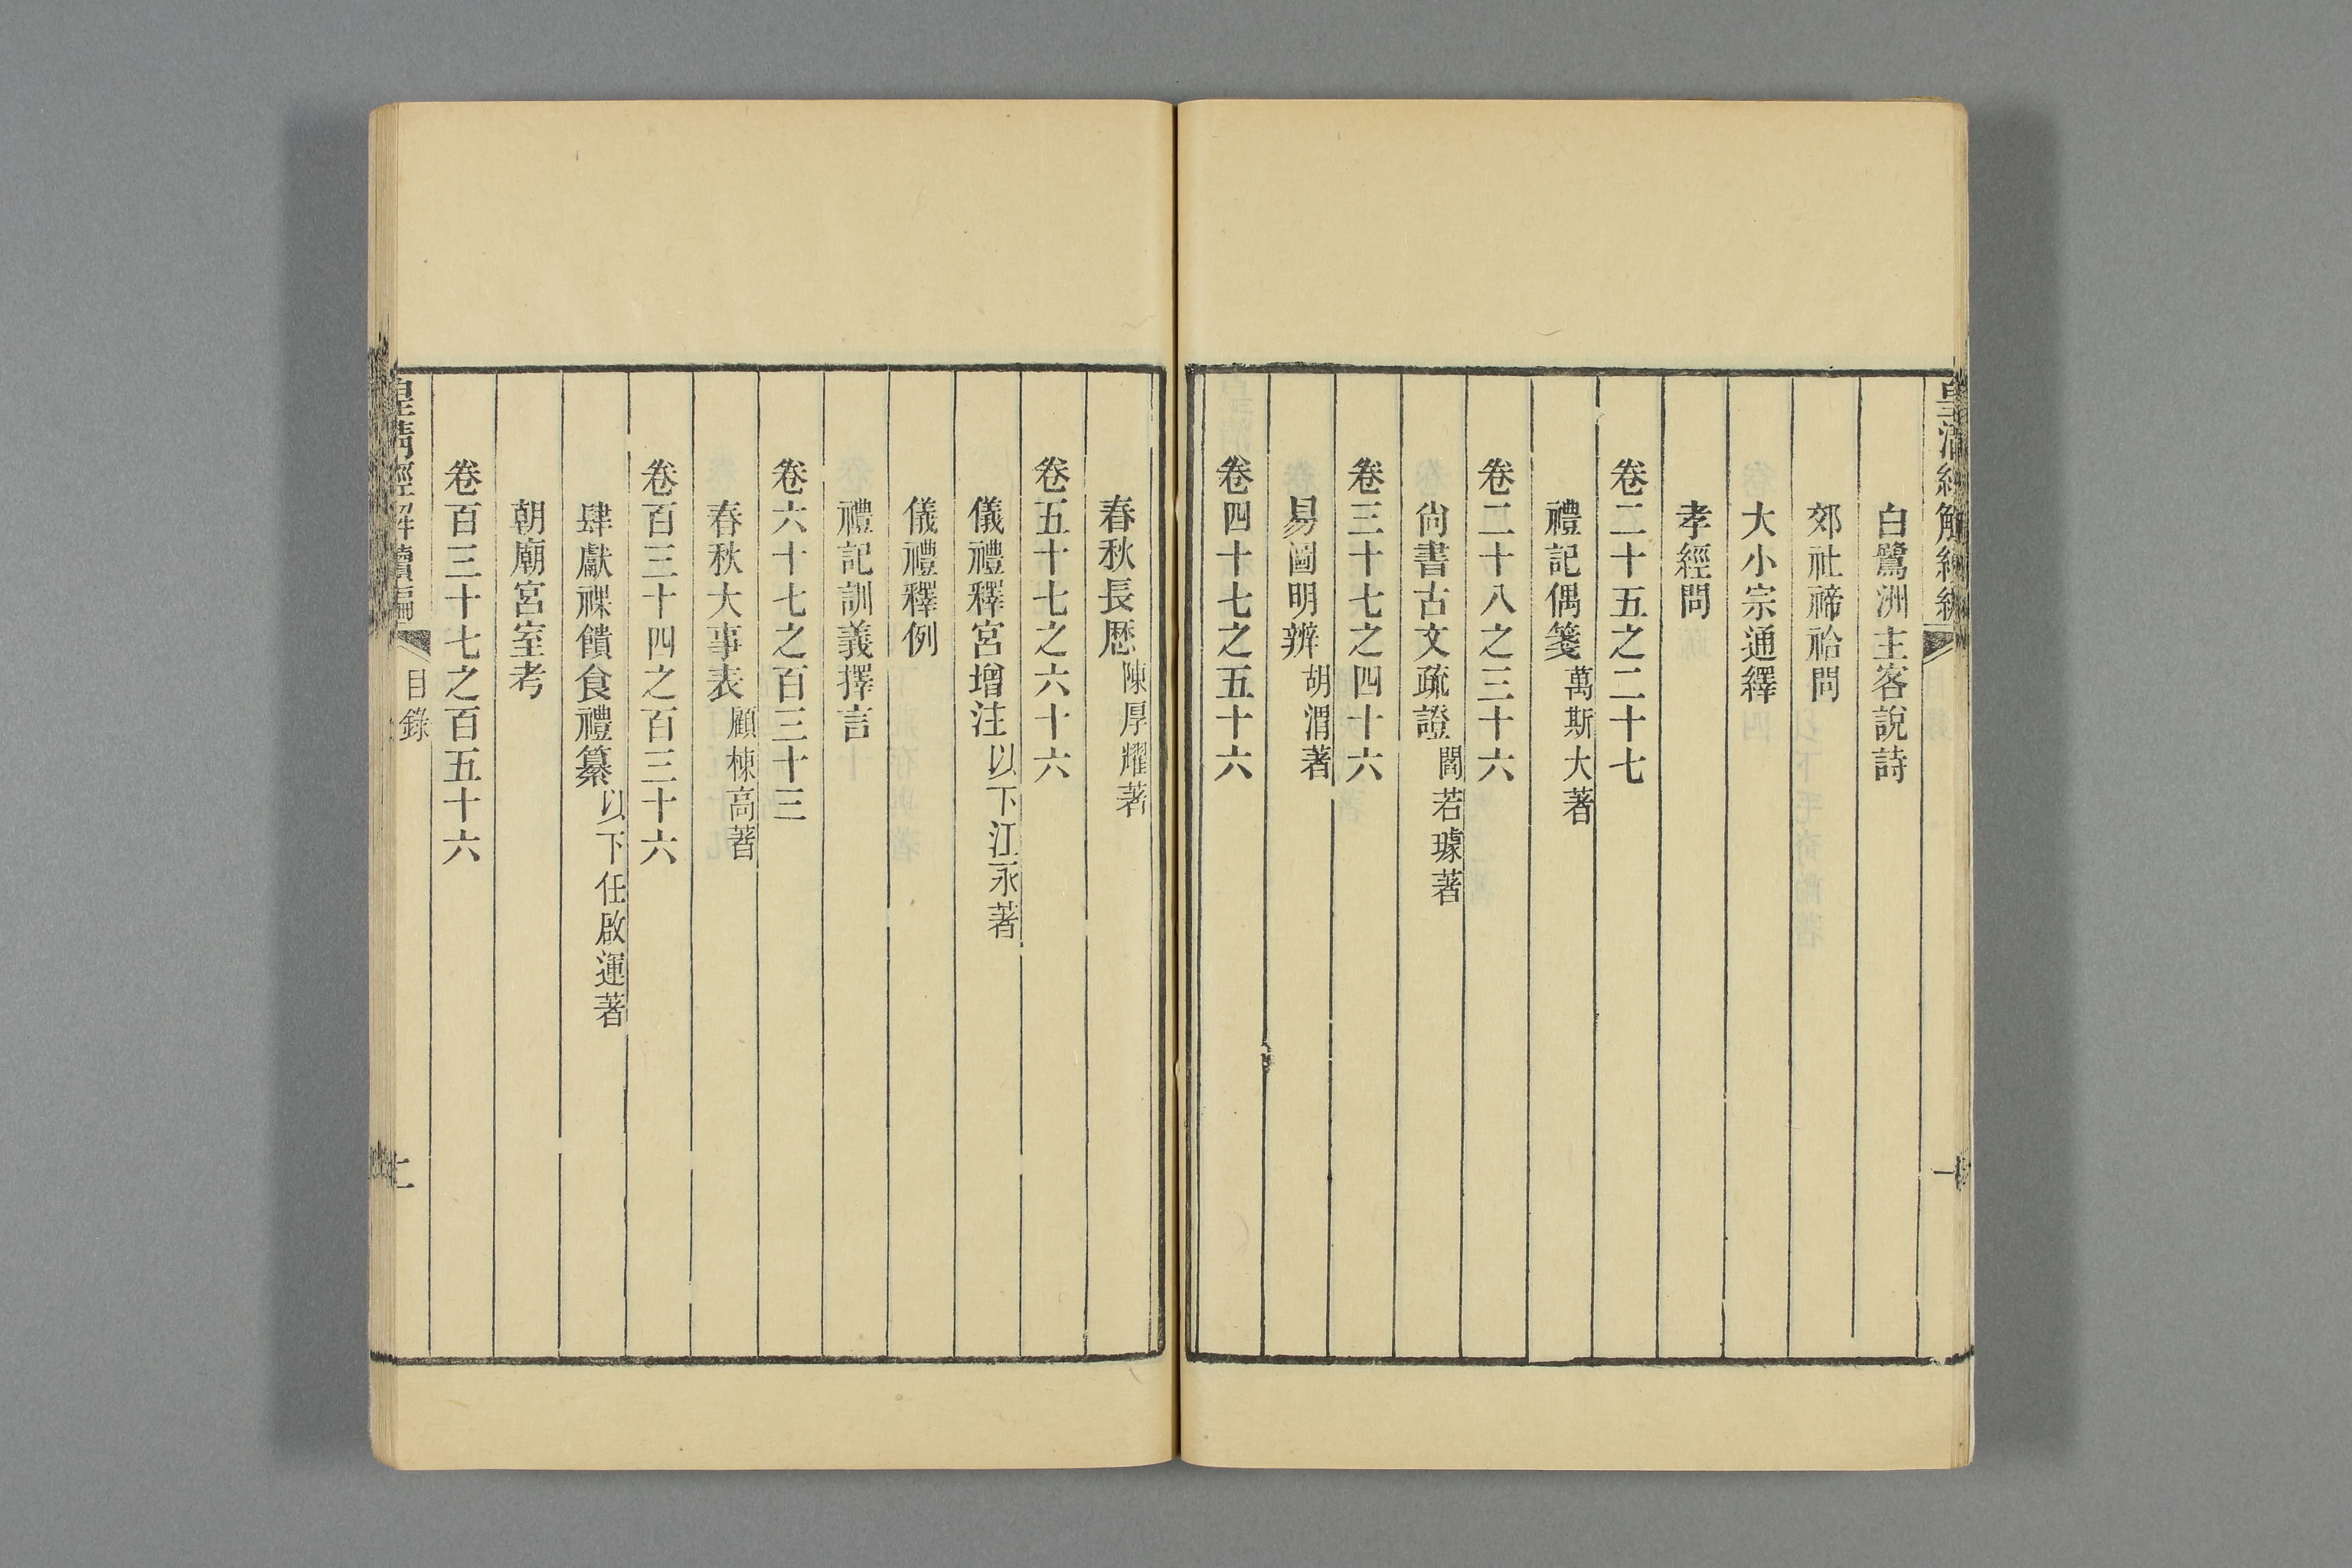 皇清經解續編
白鷺洲主客說詩
郊社禘祫問
大小宗通繹
孝經問
卷二十五之二十七
禮記偶箋 萬斯大著
卷二十八之三十六
尙書古文疏證 閻若璩著
卷三十七之四十六
易圖明辨 胡渭著
卷四十七之五十六
春秋長厯 陳厚耀著
卷五十七之六十六
儀禮釋宮增注 以下江永著
儀禮釋例
禮記訓義擇言
卷六十七之百三十三
春秋大事表 顧棟高著
卷百三十四之百三十六
肆獻祼饋食禮纂 以下任啟運著
朝廟宮室考
卷百三十七之百五十六
皇清經解續編 目錄